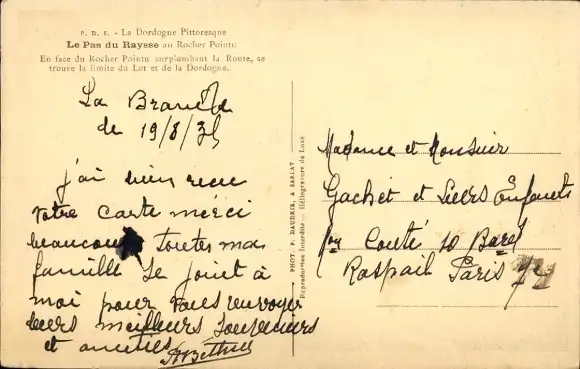 P. D. S. - La Dordogne Pittoresque
Le Pas du Raysse au Rocher Pointu
En face du Rocher Pointu surplombant la Route, se
trouve la limite du Lot et de la Dordogne.
La
de 19/8/35
j'ai bien reçu
votre carte merci
beaucoup toutes ma
famille se joint à
moi pour vous renvoyer
leurs meilleurs souvenirs
et amitiés
PHOT. P. DAUDRIX, A SARLAT
Reproduction Interdite - Héliogravure de Luxe
Madame et Monsieur
Gachet et Enfants
10
Raspail Paris